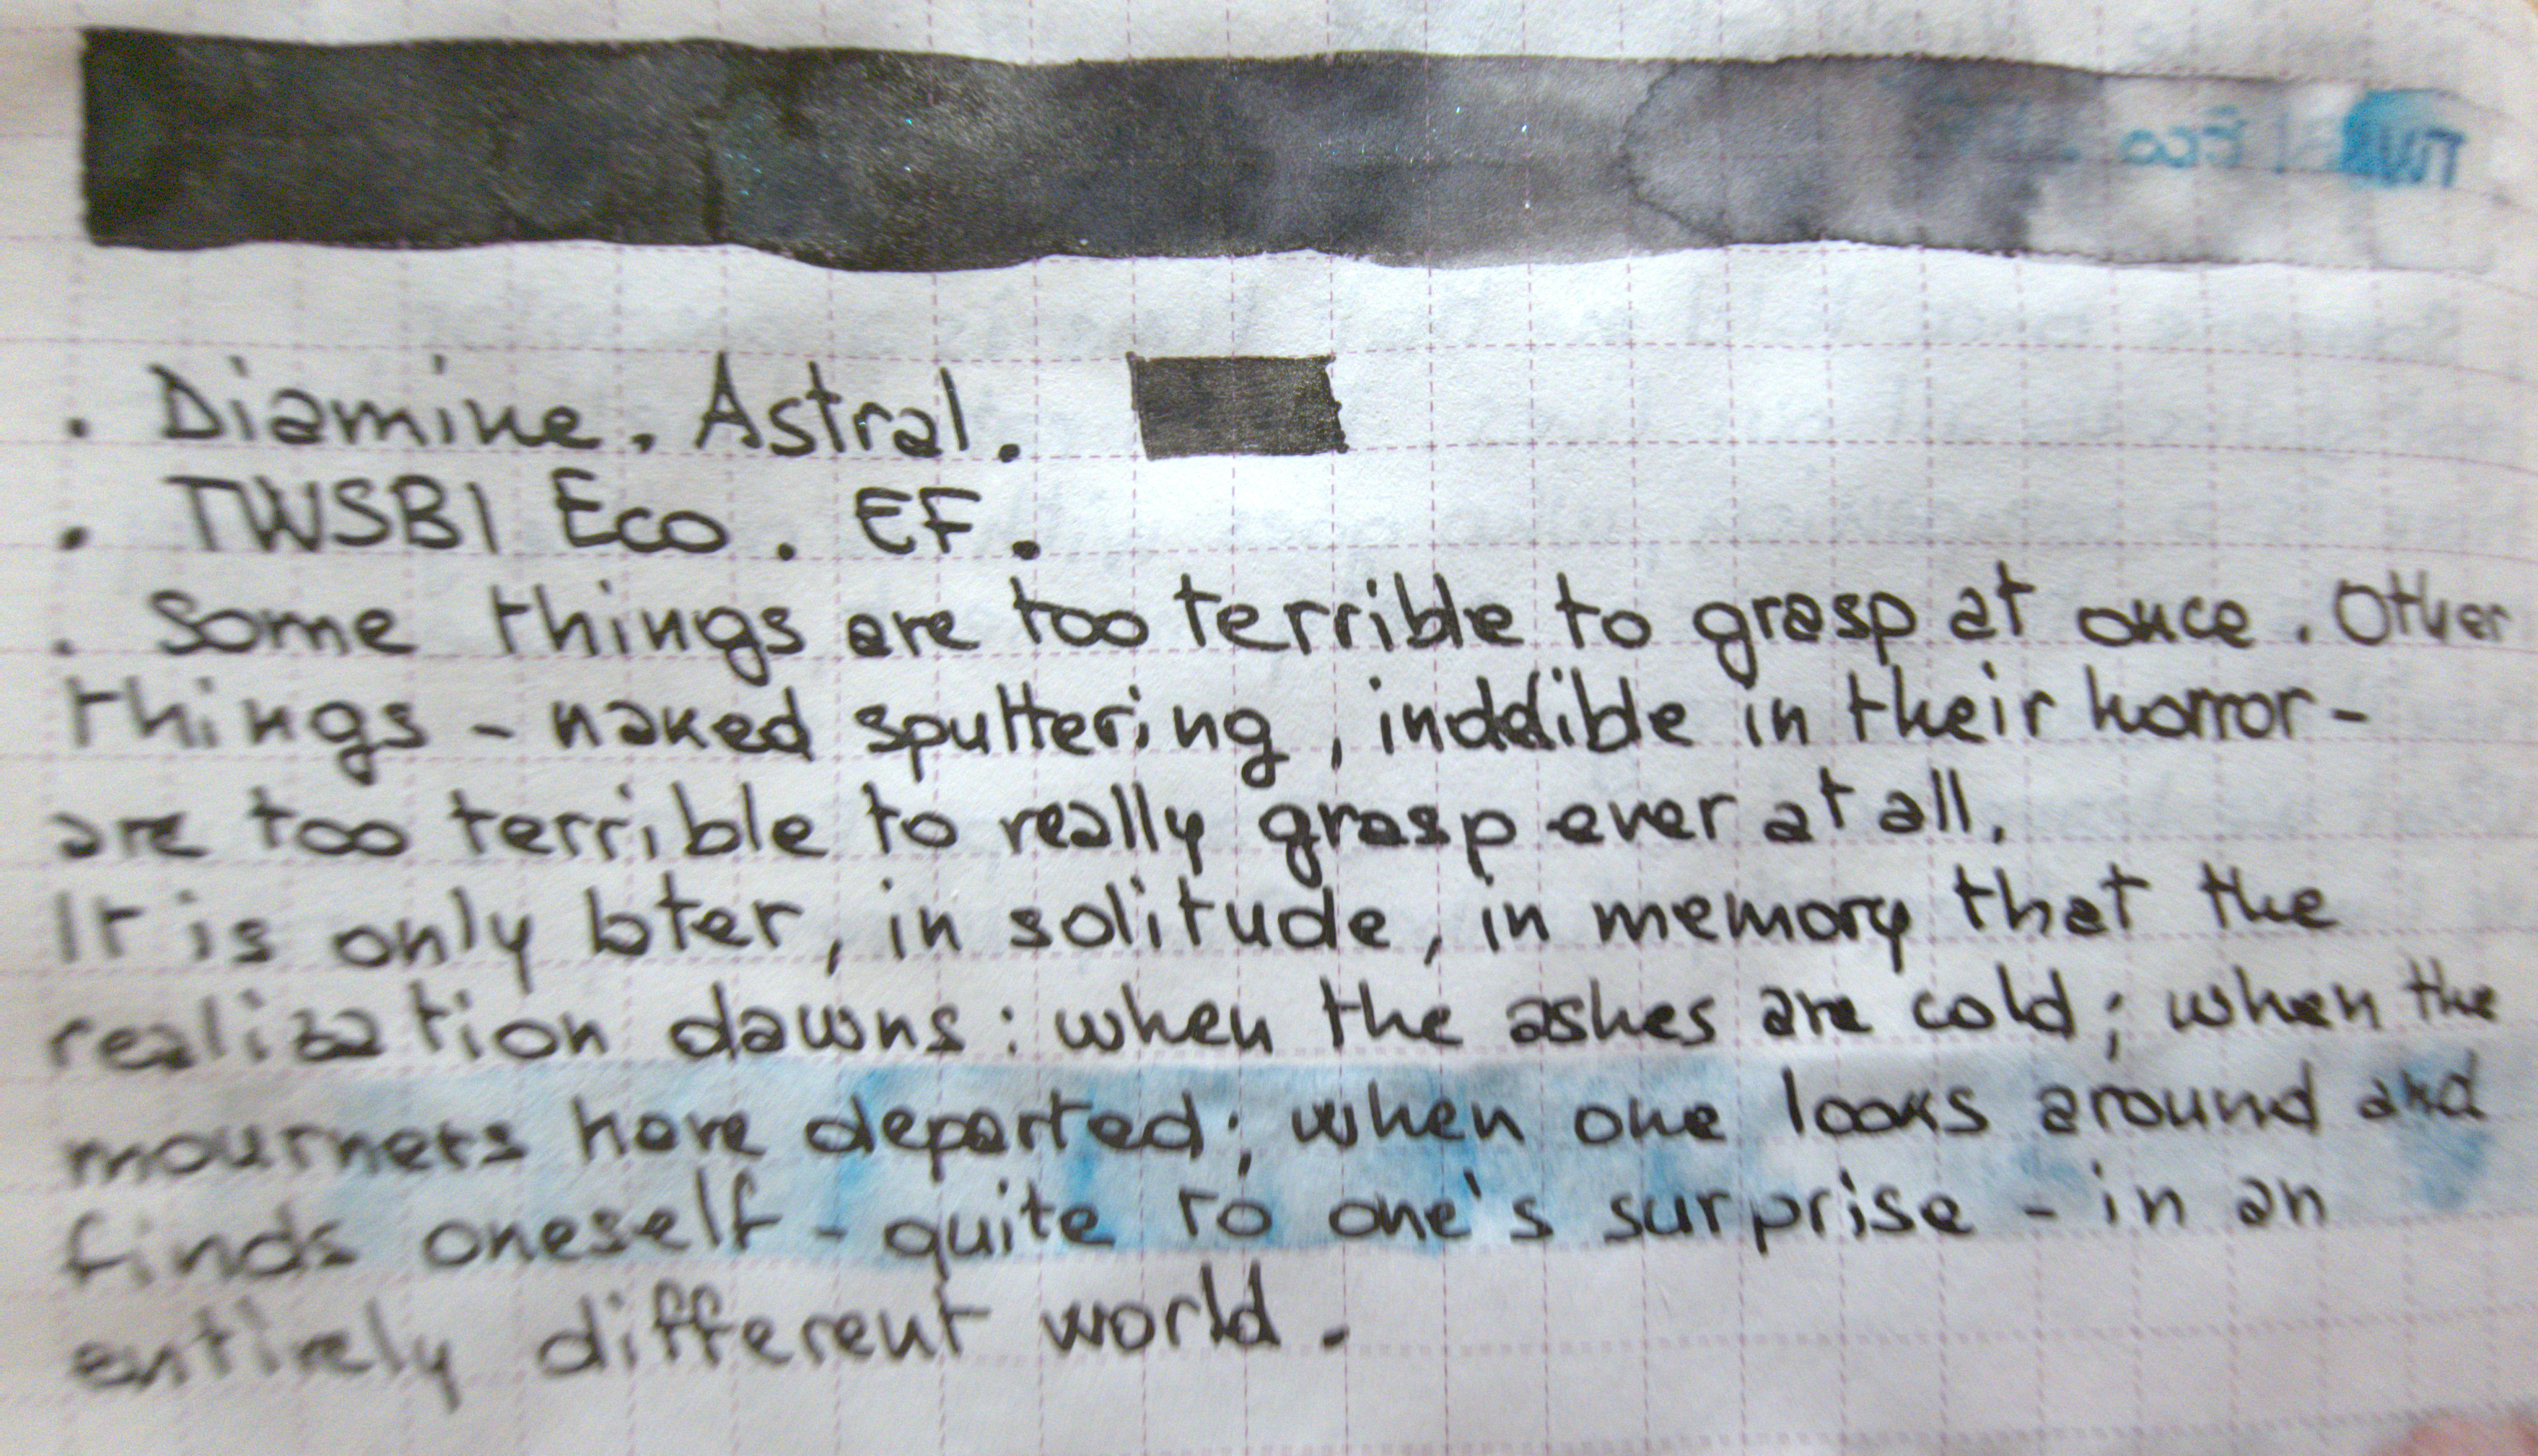 TWSBI Eco
. Diamine. Astral.
. TWSBI Eco. EF.
. Some things are too terrible to grasp at once. Other
things - naked sputtering, indelible in their horror -
are too terrible to really grasp ever at all.
It is only later, in solitude, in memory that the
realization dawns: when the ashes are cold; when the
mourners have departed; when one looks around and
finds oneself - quite to one's surprise - in an
entirely different world.